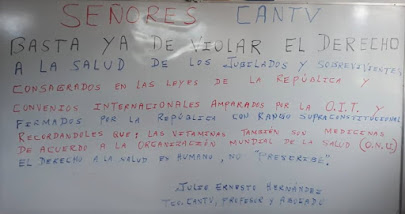 SEÑORES CANTV
BASTA YA DE VIOLAR EL DERECHO
A LA SALUD DE LOS JUBILADOS Y SOBREVIVIENTES,
CONSAGRADOS EN LAS LEYES DE LA REPÚBLICA Y
CONVENIOS INTERNACIONALES AMPARADOS POR LA O.I.T. Y
FIRMADOS POR LA REPÚBLICA CON RANGO SUPRACONSTITUCIONAL
RECORDANDOLES QUE; LAS VITAMINAS TAMBIÉN SON MEDICINAS
DE ACUERDO A LA ORGANIZACIÓN MUNDIAL DE LA SALUD (O.N.U)
EL DERECHO A LA SALUD ES HUMANO, NO "PRESCRIBE".
JULIO ERNESTO HERNÁNDEZ
TEC. CANTV, PROFESOR Y ABOGADO